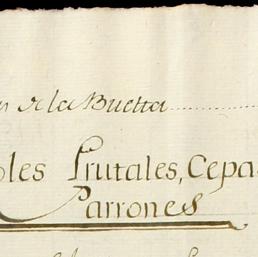 de la Buetta
oles Frutales, Cepa
Parrones